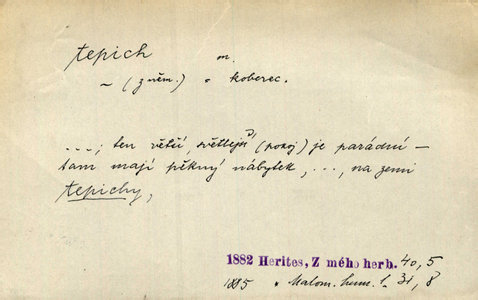 tepich m.
~ (z něm.) = koberec.
...; ten větší, světlejší (pokoj) je parádní –
tam mají pěkný nábytek, ..., na zemi
tepichy,
1882 Herites, Z mého herb. 40, 5
1885 Malom. hum. 31, 8